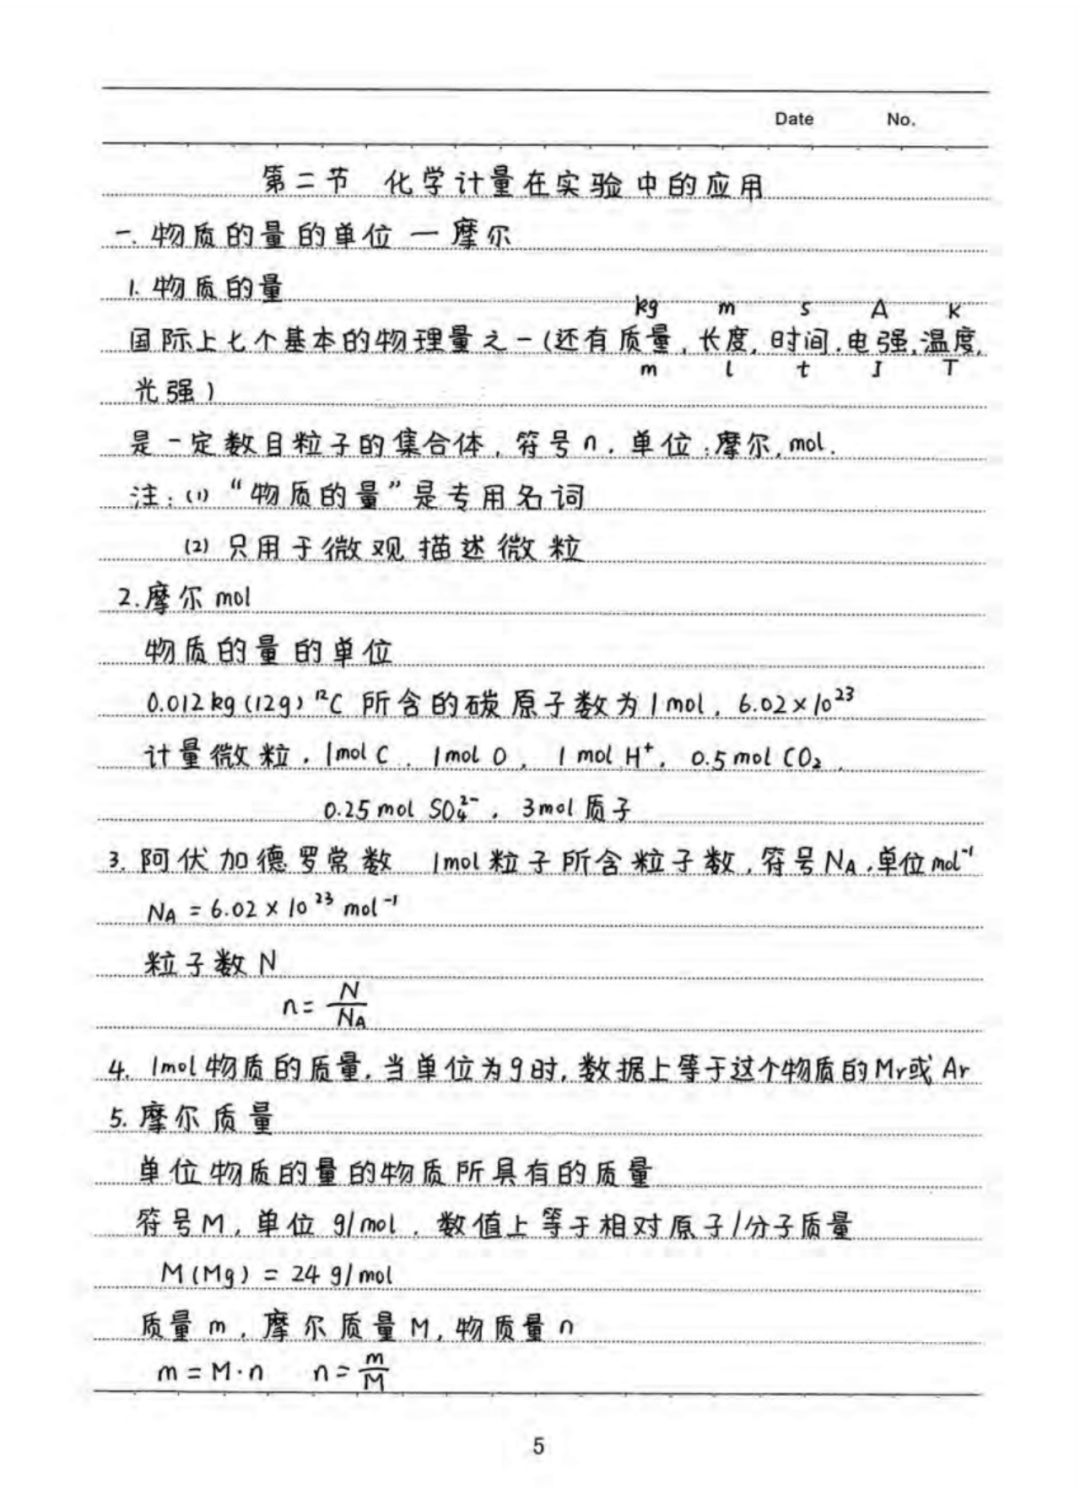 Date No.
第二节 化学计量在实验中的应用
一. 物质的量的单位 — 摩尔
1. 物质的量
kg m s A K
国际上七个基本的物理量之一(还有质量, 长度, 时间, 电强, 温度,
m l t I T
光强)
是一定数目粒子的集合体, 符号n, 单位:摩尔, mol.
注: (1) “物质的量”是专用名词
(2) 只用于微观描述微粒
2. 摩尔 mol
物质的量的单位
0.012kg (12g) ¹²C 所含的碳原子数为1mol, 6.02×10²³
计量微粒, 1mol C, 1mol O, 1 mol H⁺, 0.5mol CO₂,
0.25 mol SO₄²⁻, 3mol 质子
3. 阿伏加德罗常数 1mol粒子所含粒子数, 符号NA, 单位mol⁻¹
NA = 6.02 × 10²³ mol⁻¹
粒子数 N
n = N/NA
4. 1mol物质的质量, 当单位为g时, 数据上等于这个物质的Mr或Ar
5. 摩尔质量
单位物质的量的物质所具有的质量
符号M, 单位 g/mol, 数值上等于相对原子/分子质量
M(Mg) = 24 g/mol
质量 m, 摩尔质量 M, 物质量 n
m = M·n n = m/M
5